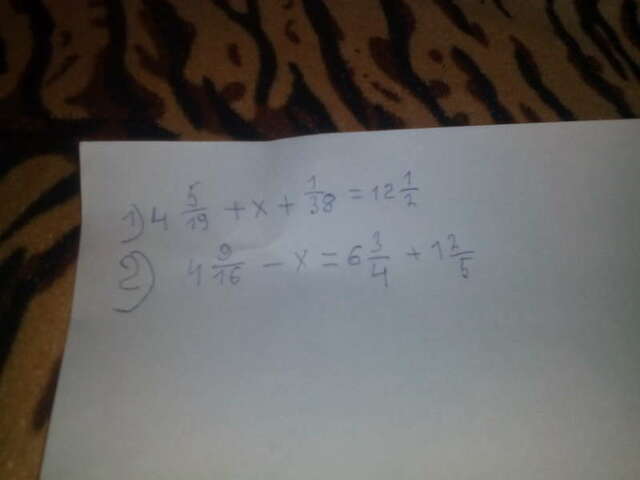 1) 4 5/19 + x + 1/38 = 12 1/2
2) 4 9/16 - x = 6 3/4 + 1 2/5